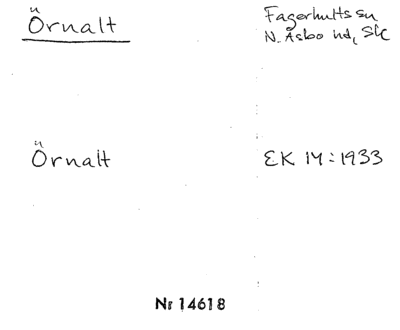 Örnalt
Fagerhults sn
N. Åsbo hd, Sk
Örnalt
EK 14:1933
Nr 14618